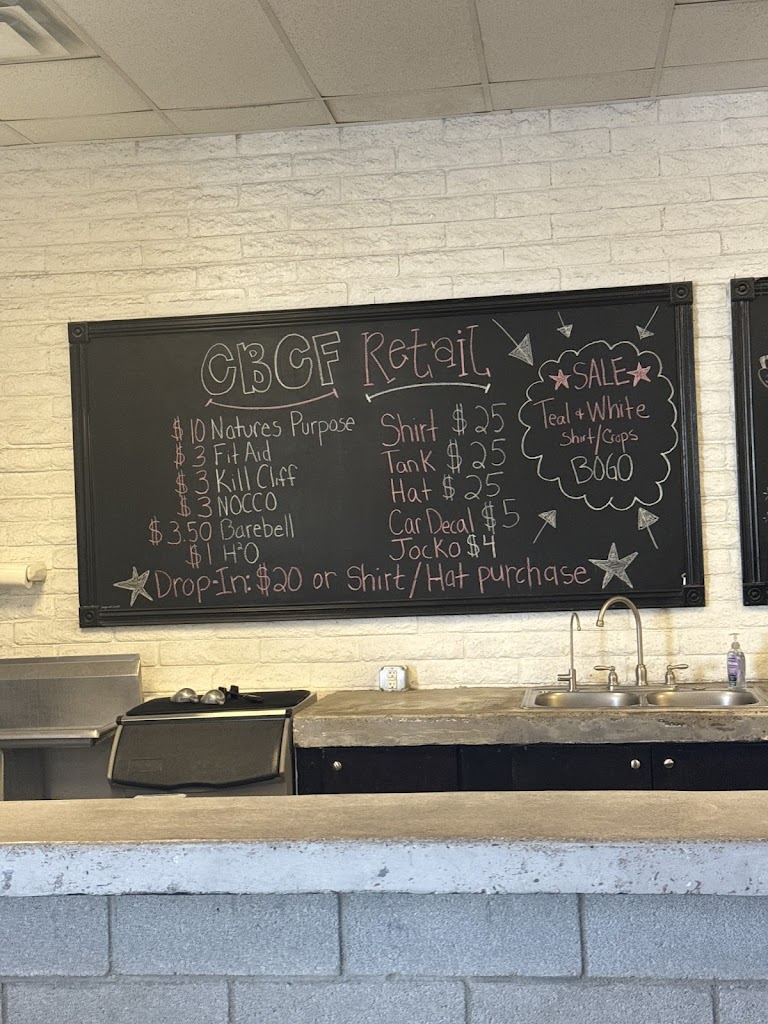 CBCF Retail
$10 Natures Purpose
$3 Fit Aid
$3 Kill Cliff
$3 NOCCO
$3.50 Barebell
$1 H²O
Shirt $25
Tank $25
Hat $25
Car Decal $5
Jocko $4
Drop-In: $20 or Shirt/Hat purchase
SALE
Teal + White
Shirt/Crops
BOGO